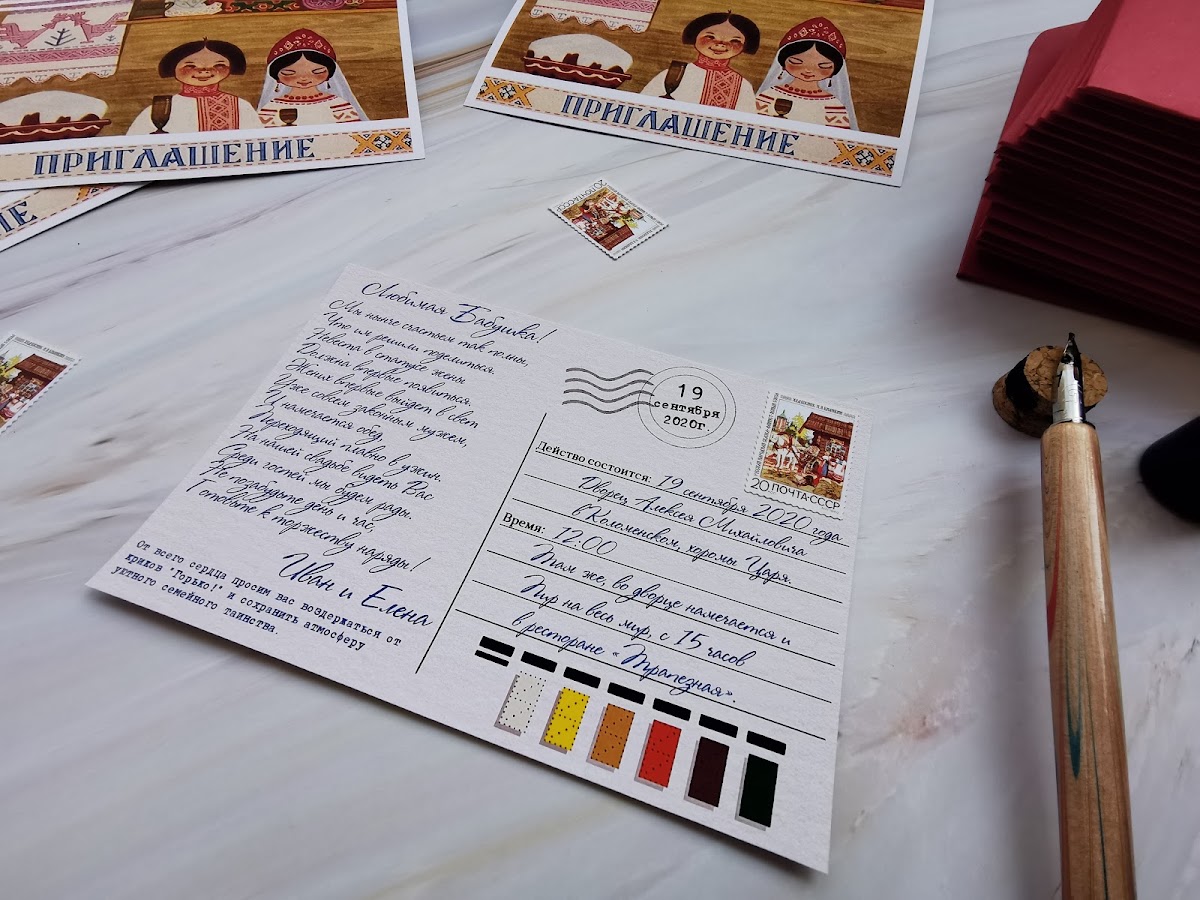 ПРИГЛАШЕНИЕ
ПРИГЛАШЕНИЕ
ИЕ
20 ПОЧТА СССР
Любимая Бабушка!
Мы нынче счастьем так полны,
Что им решили поделиться.
Невеста в статусе жены
Должна впервые появиться.
Жених впервые выйдет в свет
Уже совсем законным мужем,
И намечается обед,
Переходящий плавно в ужин.
На нашей свадьбе видеть Вас
Среди гостей мы будем рады.
Не позабудьте день и час,
Готовьте к торжеству наряды!
Иван и Елена
От всего сердца просим вас воздержаться от
криков "Горько!" и сохранить атмосферу
уютного семейного таинства.
19
сентября
2020г.
20 ПОЧТА СССР
Действо состоится: 19 сентября 2020 года
Дворец Алексея Михайловича
в Коломенском, хоромы Царя.
Время: 12.00
Там же, во дворце намечается и
Пир на весь мир, с 15 часов
в ресторане «Трапезная».